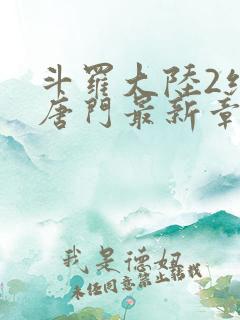 斗羅大陸2
唐門最新章
我是德妞
未经同意禁止转载